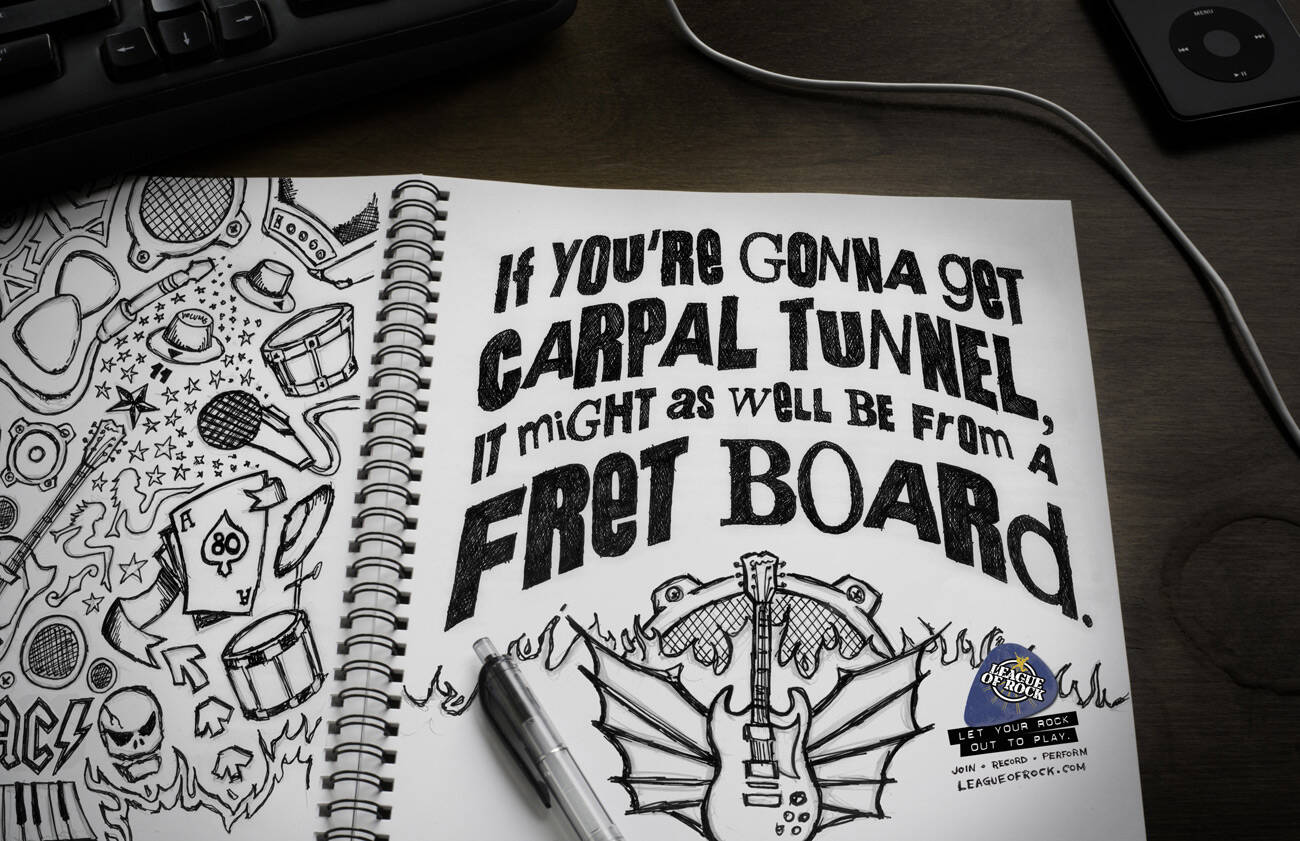 MENU
IF YOU'RE GONNA GET
CARPAL TUNNEL,
IT MIGHT AS WELL BE FROM A
FRET BOARD.
VOLUME
11
A
80
A
LEAGUE
OF ROCK
LET YOUR ROCK
OUT TO PLAY.
JOIN • RECORD • PERFORM
LEAGUEOFROCK.COM